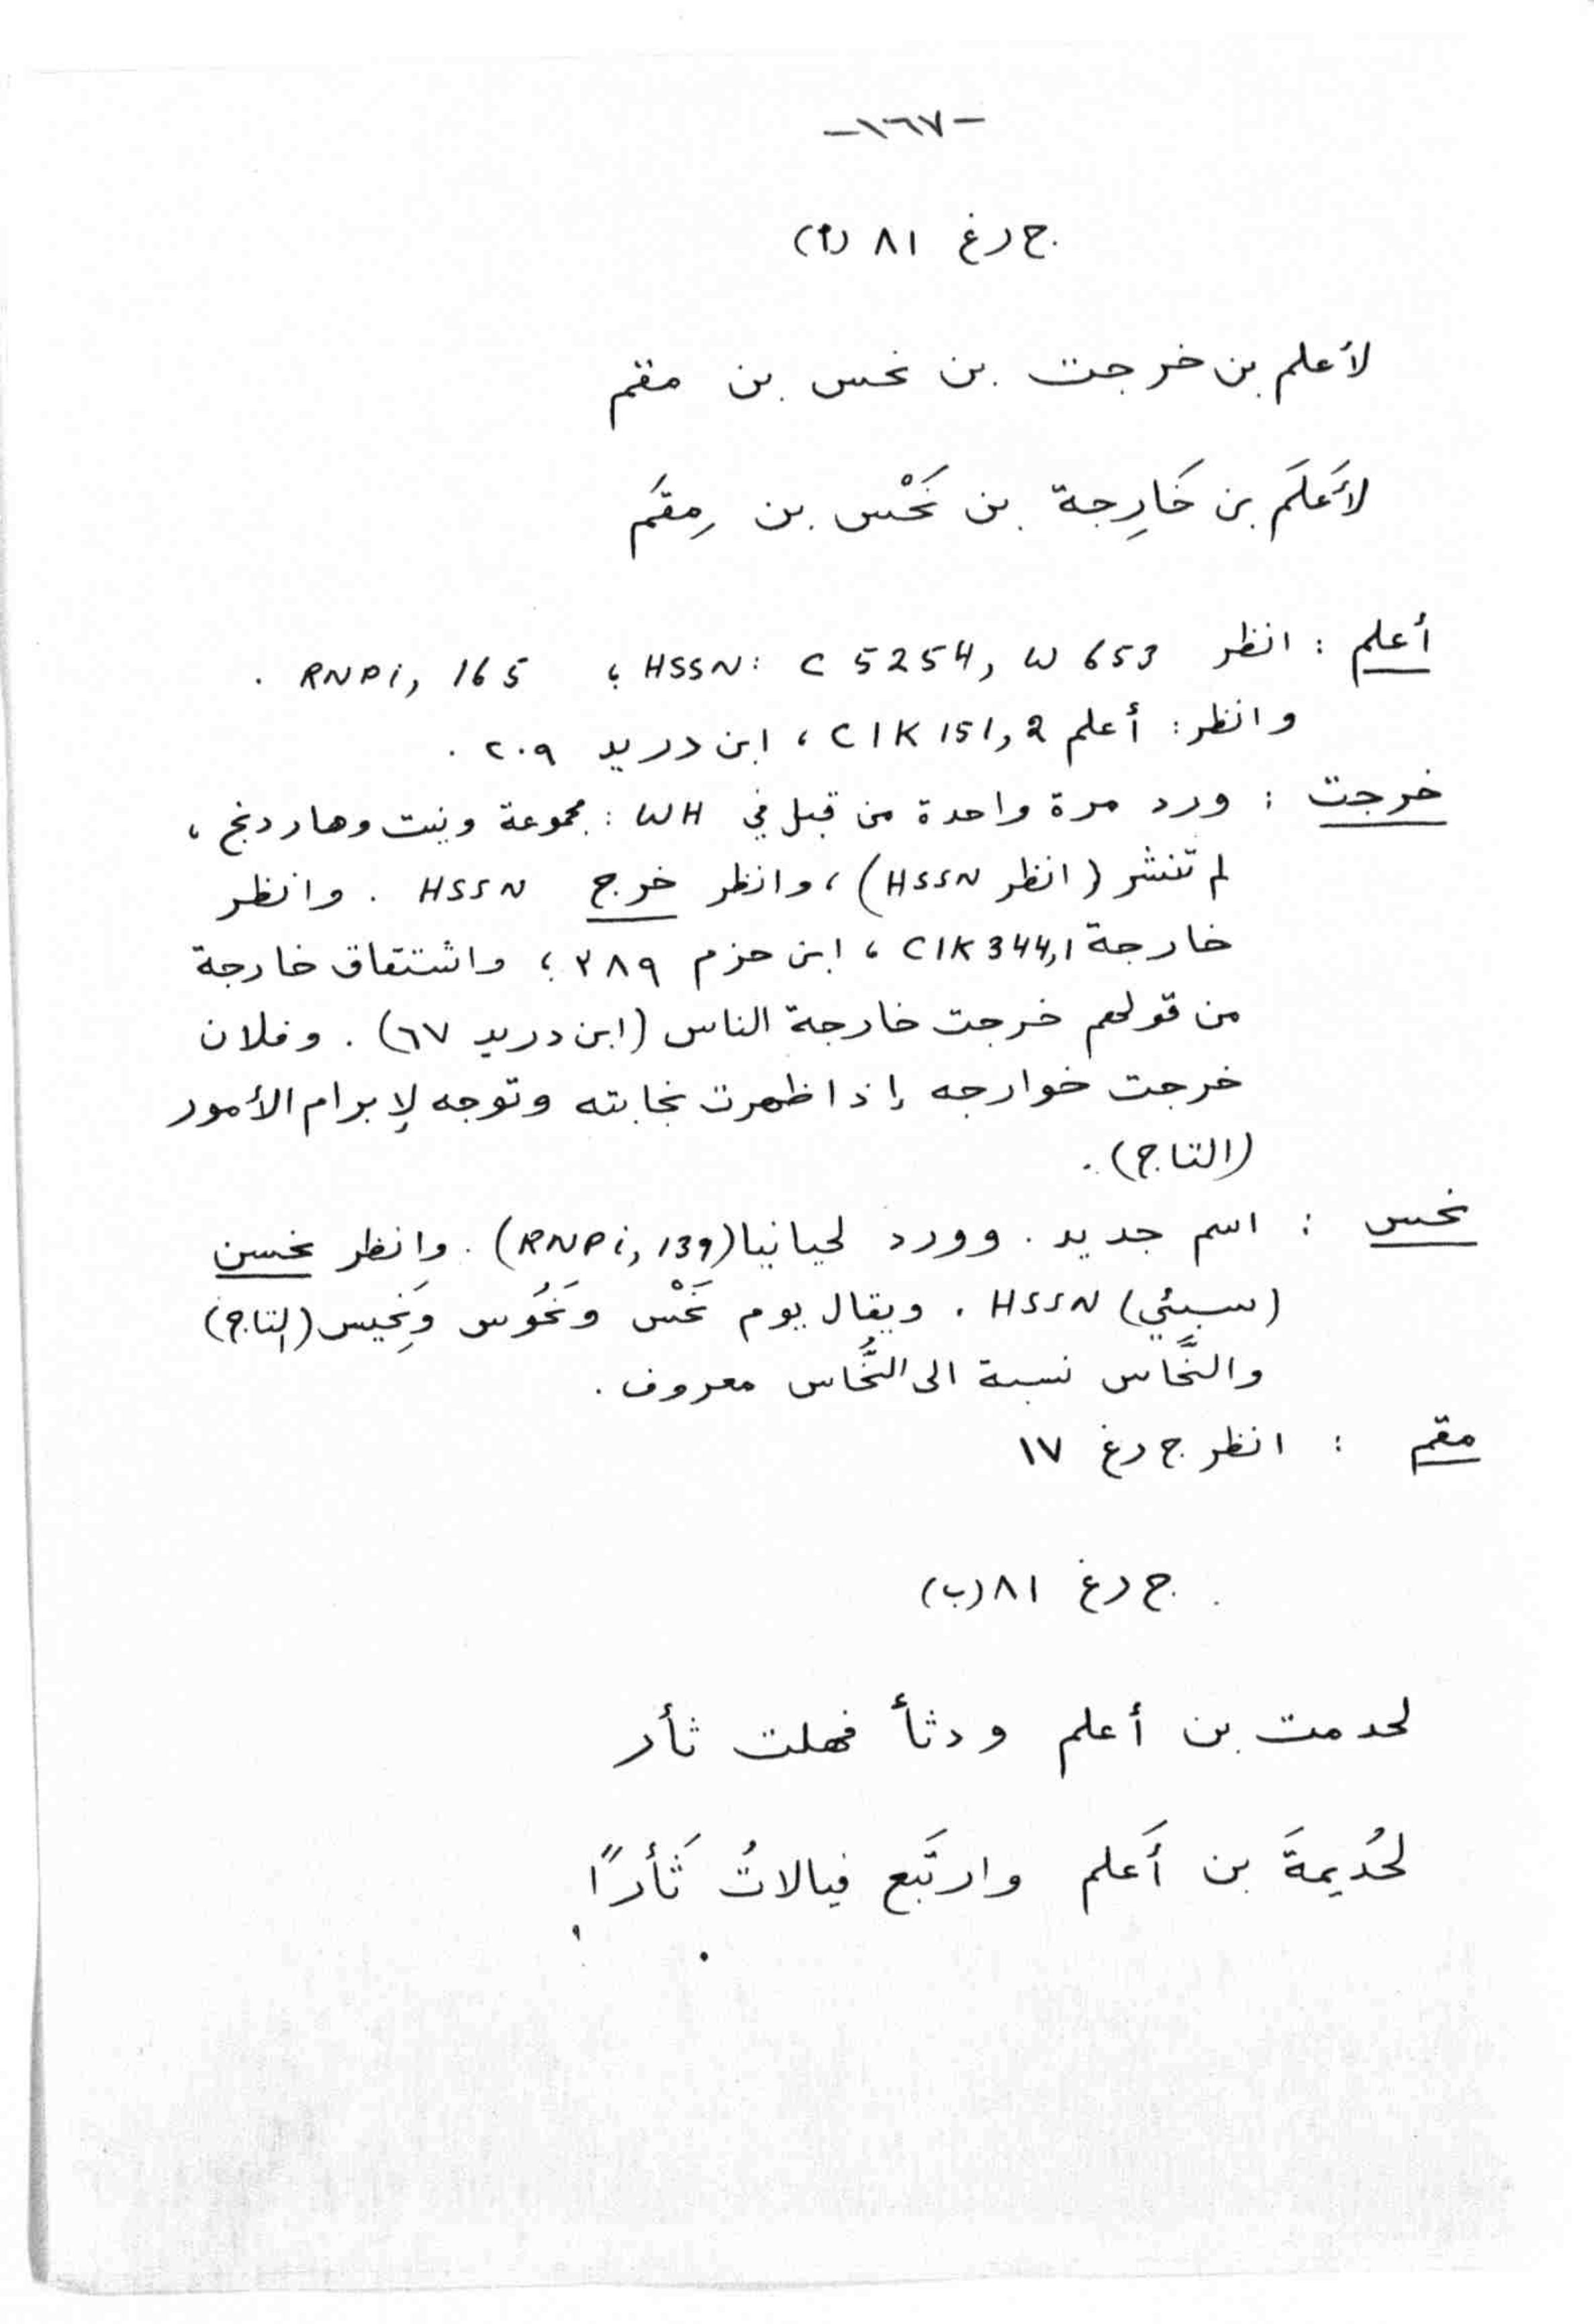 -١٦٧-
ج رغ ٨١ (أ)
لأعلم بن خرجت بن نحس بن مقم
لأَعْلَم بن خَارِجة بن نَحْس بن مِقَم
أعلم : انظر HSSN: C 5254, W 653 ؛ RNPi, 165 .
وانظر: أعلم CIK 151,2 ، ابن دريد ٢٠٩ .
خرجت : ورد مرة واحدة من قبل في WH : مجموعة ونيت وهاردنج ،
لم تنشر (انظر HSSN) ، وانظر خرج HSSN . وانظر
خارجة CIK 344,1 ، ابن حزم ٣٨٩ ؛ واشتقاق خارجة
من قولهم خرجت خارجة الناس (ابن دريد ٦٧) . وفلان
خرجت خوارجه إذا ظهرت نجابته وتوجه لإبرام الأمور
(التاج) .
نحس : اسم جديد . وورد لحيانيا (RNPi, 139) . وانظر نحسن
(سبئي) HSSN . ويقال يوم نَحْس ونَحُوس ونَحِيس (التاج)
والنَّحَّاس نسبة الى النُّحَاس معروف .
مقم : انظر ج رغ ١٧
ج رغ ٨١ (ب)
لحدمت بن أعلم ودثأ فهلت ثأر
لحُدَيمةَ بن أَعلم وارتَبع فيالاتُ ثَأرًا